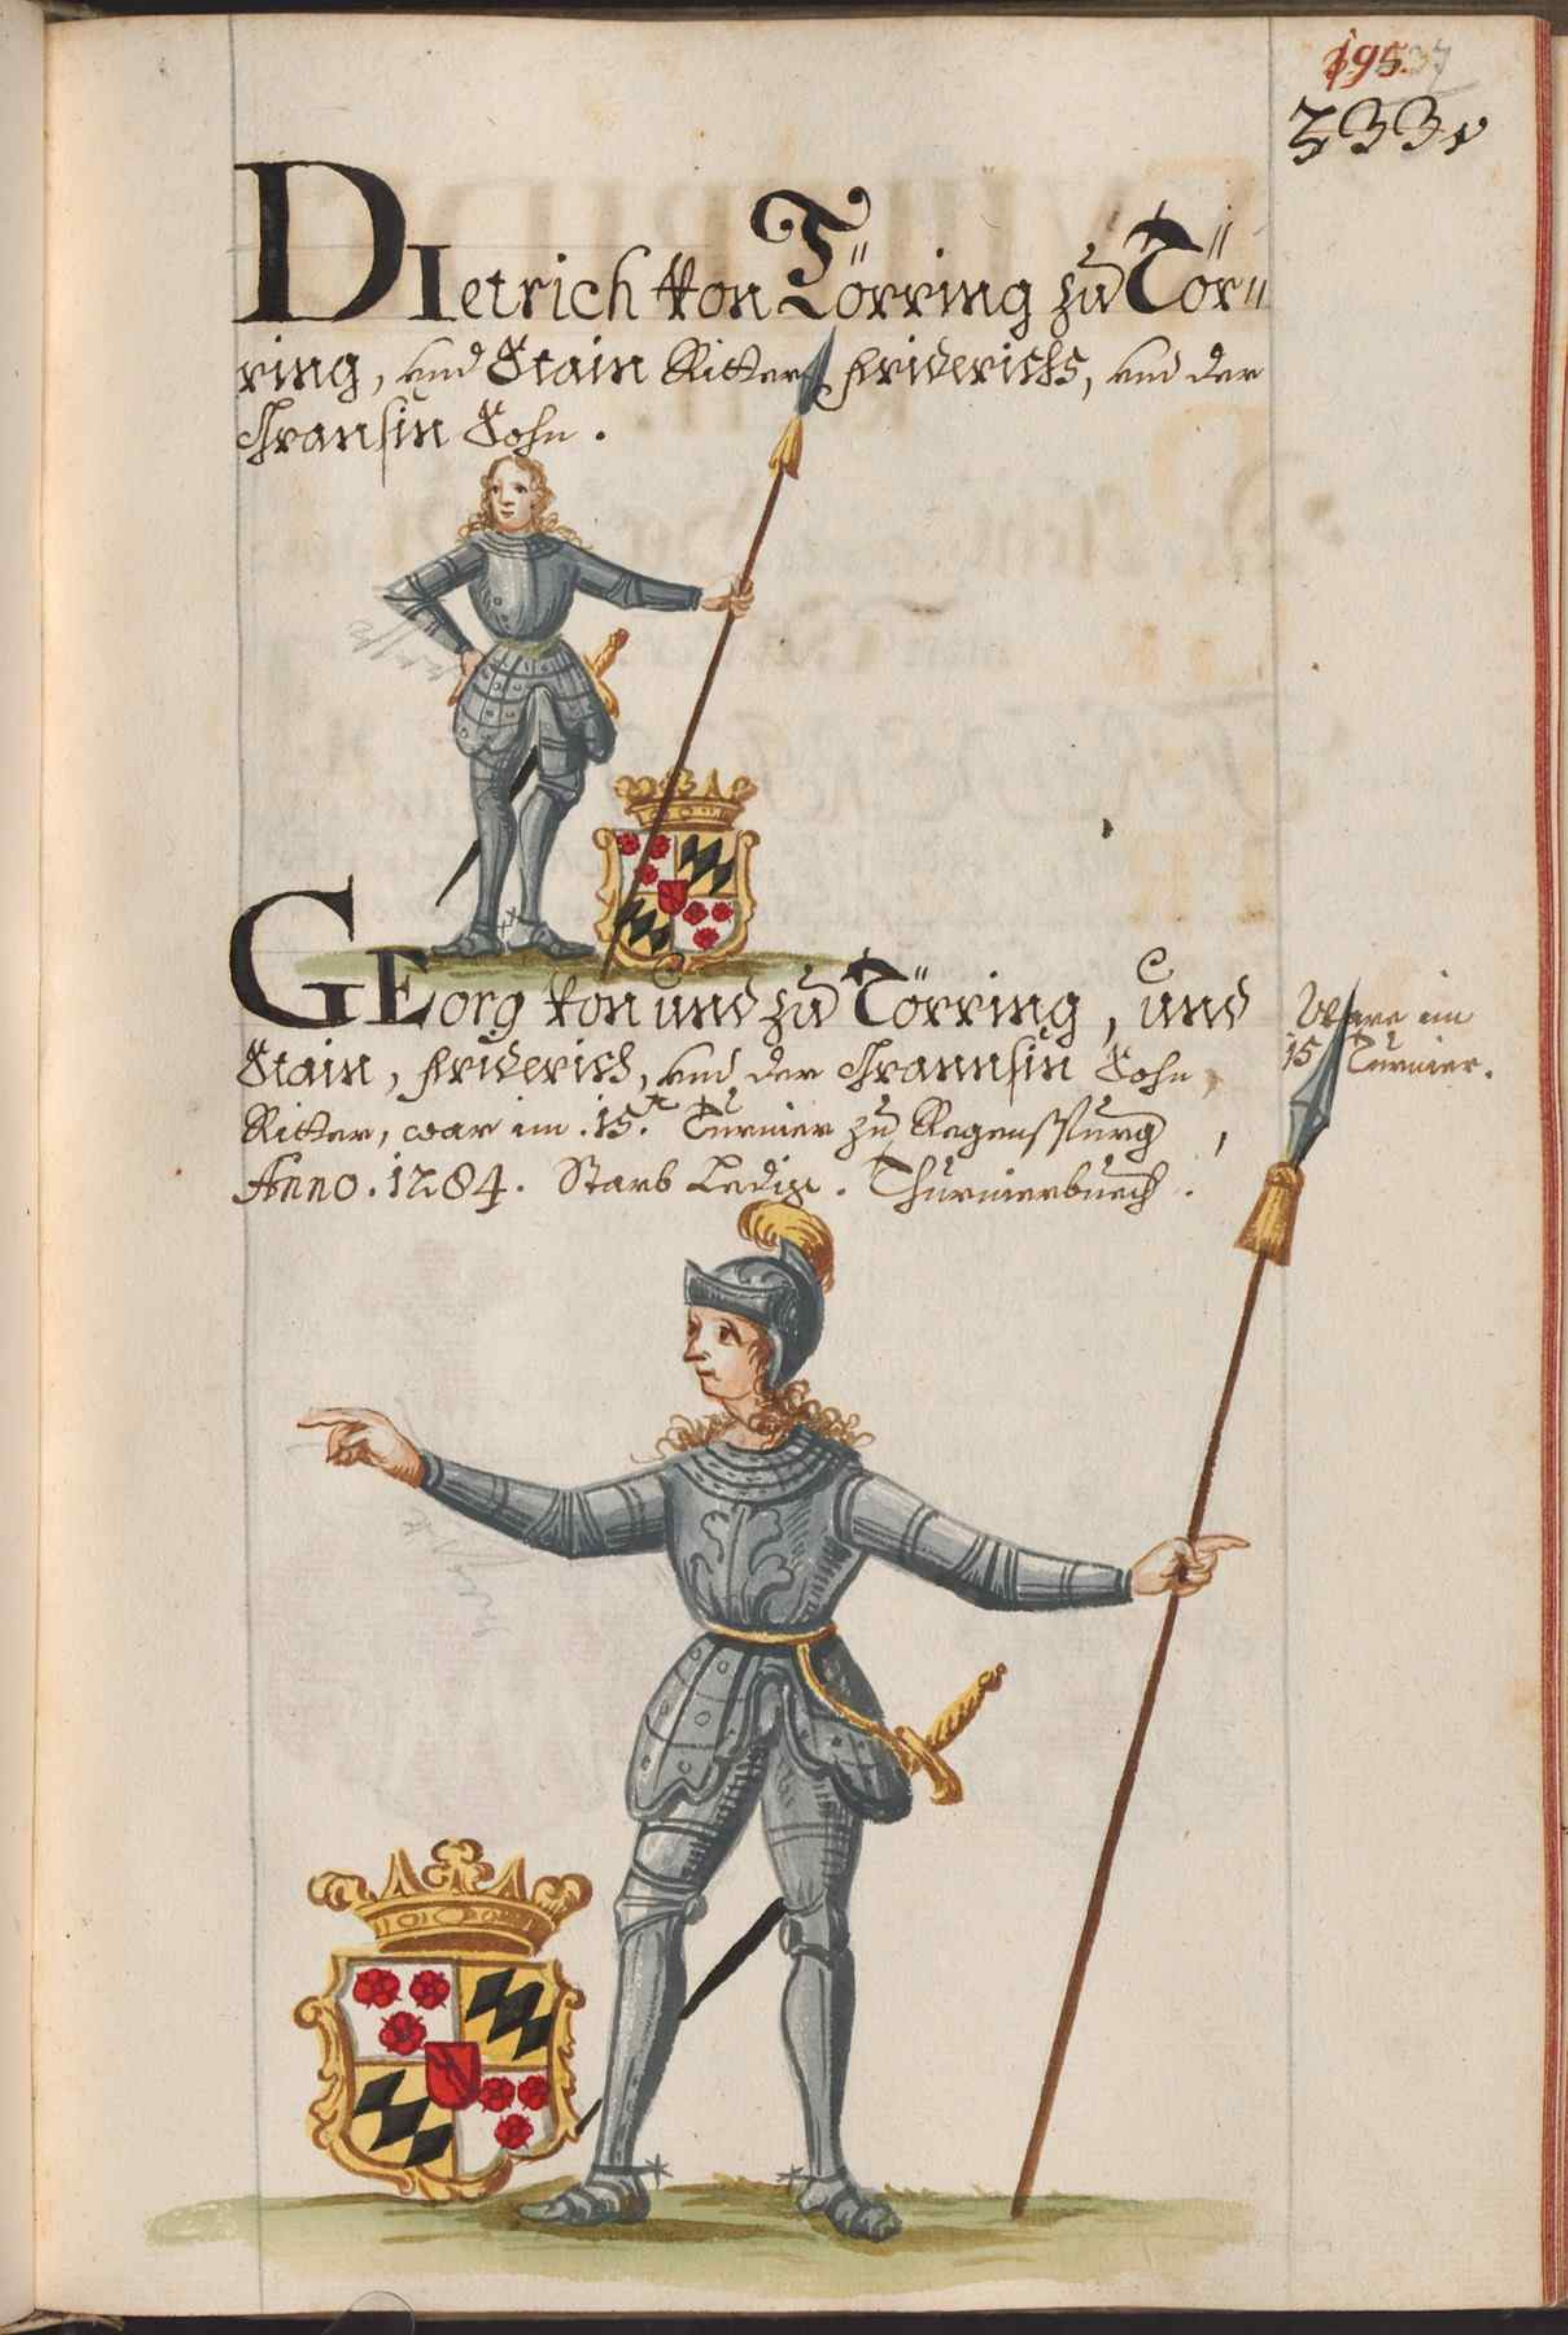 195.
333
DIetrich von Törring zu Tör=
ring, und Stain Ritter Friderichs, und der
Fransin Sohn.
GEorg von und zu Törring, und
Stain, Friderich, und der Frannsin Sohn,
Ritter, war im .15.t Turnier zu Regenspurg,
Anno. 1284. Starb Ledig. Thurnierbuech.
Ware im
15 Turnier.